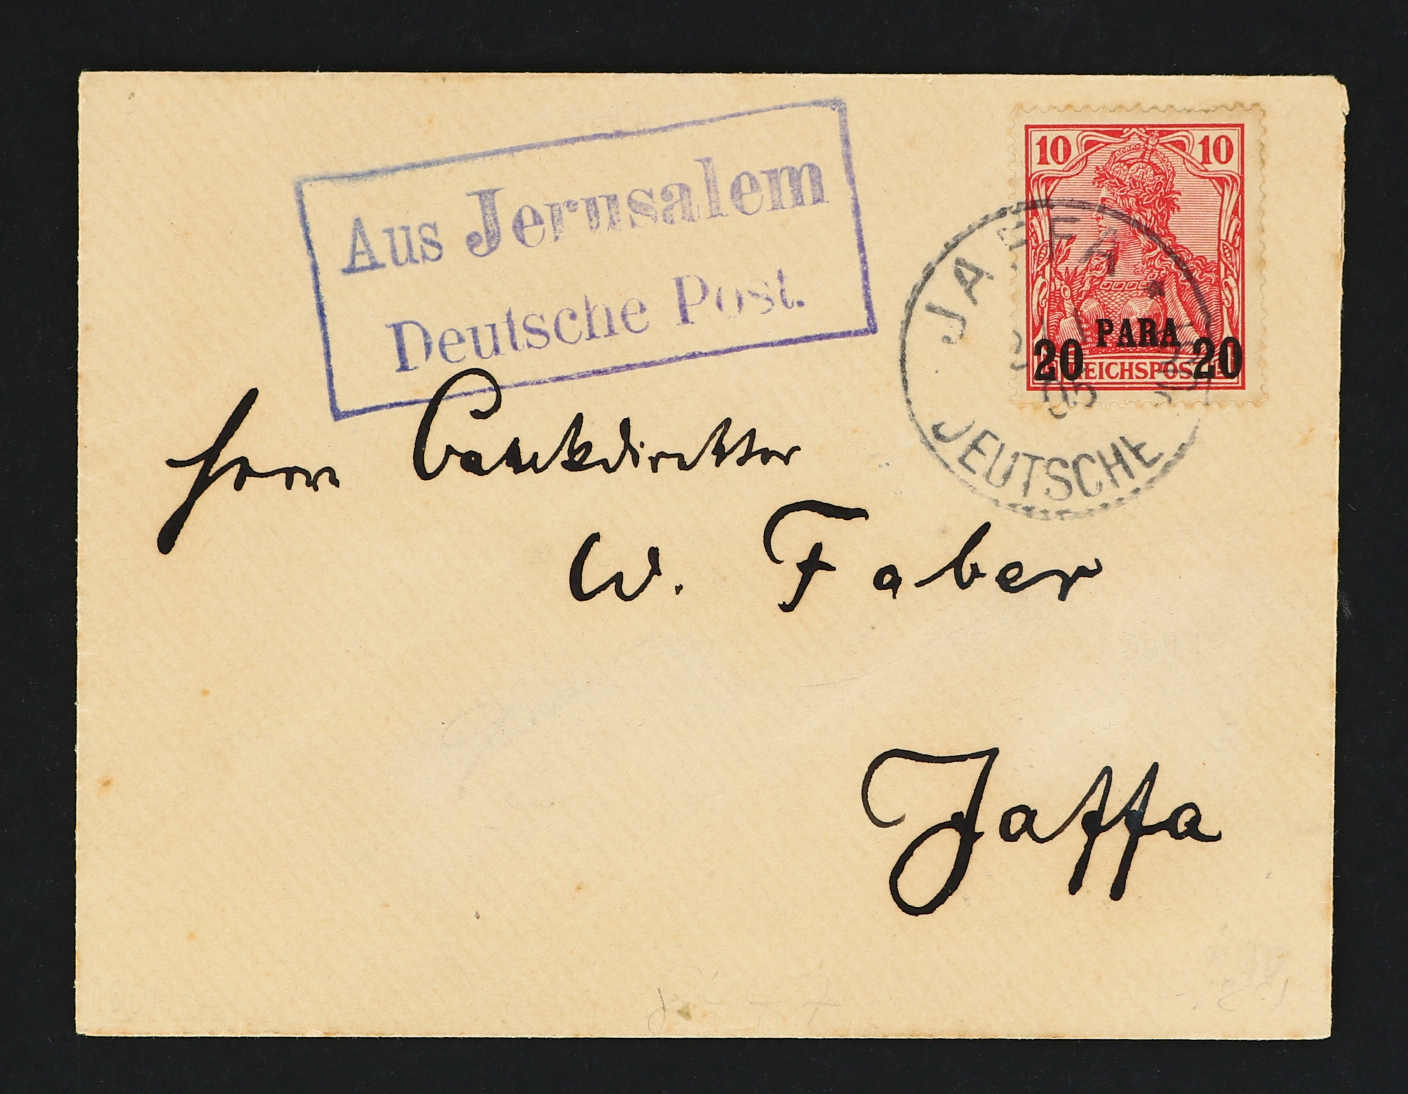 Aus Jerusalem
Deutsche Post.
10 10
PARA
20 20
REICHSPOST
JAFFA
05
DEUTSCHE
Herrn Bankdirektor
W. Faber
Jaffa